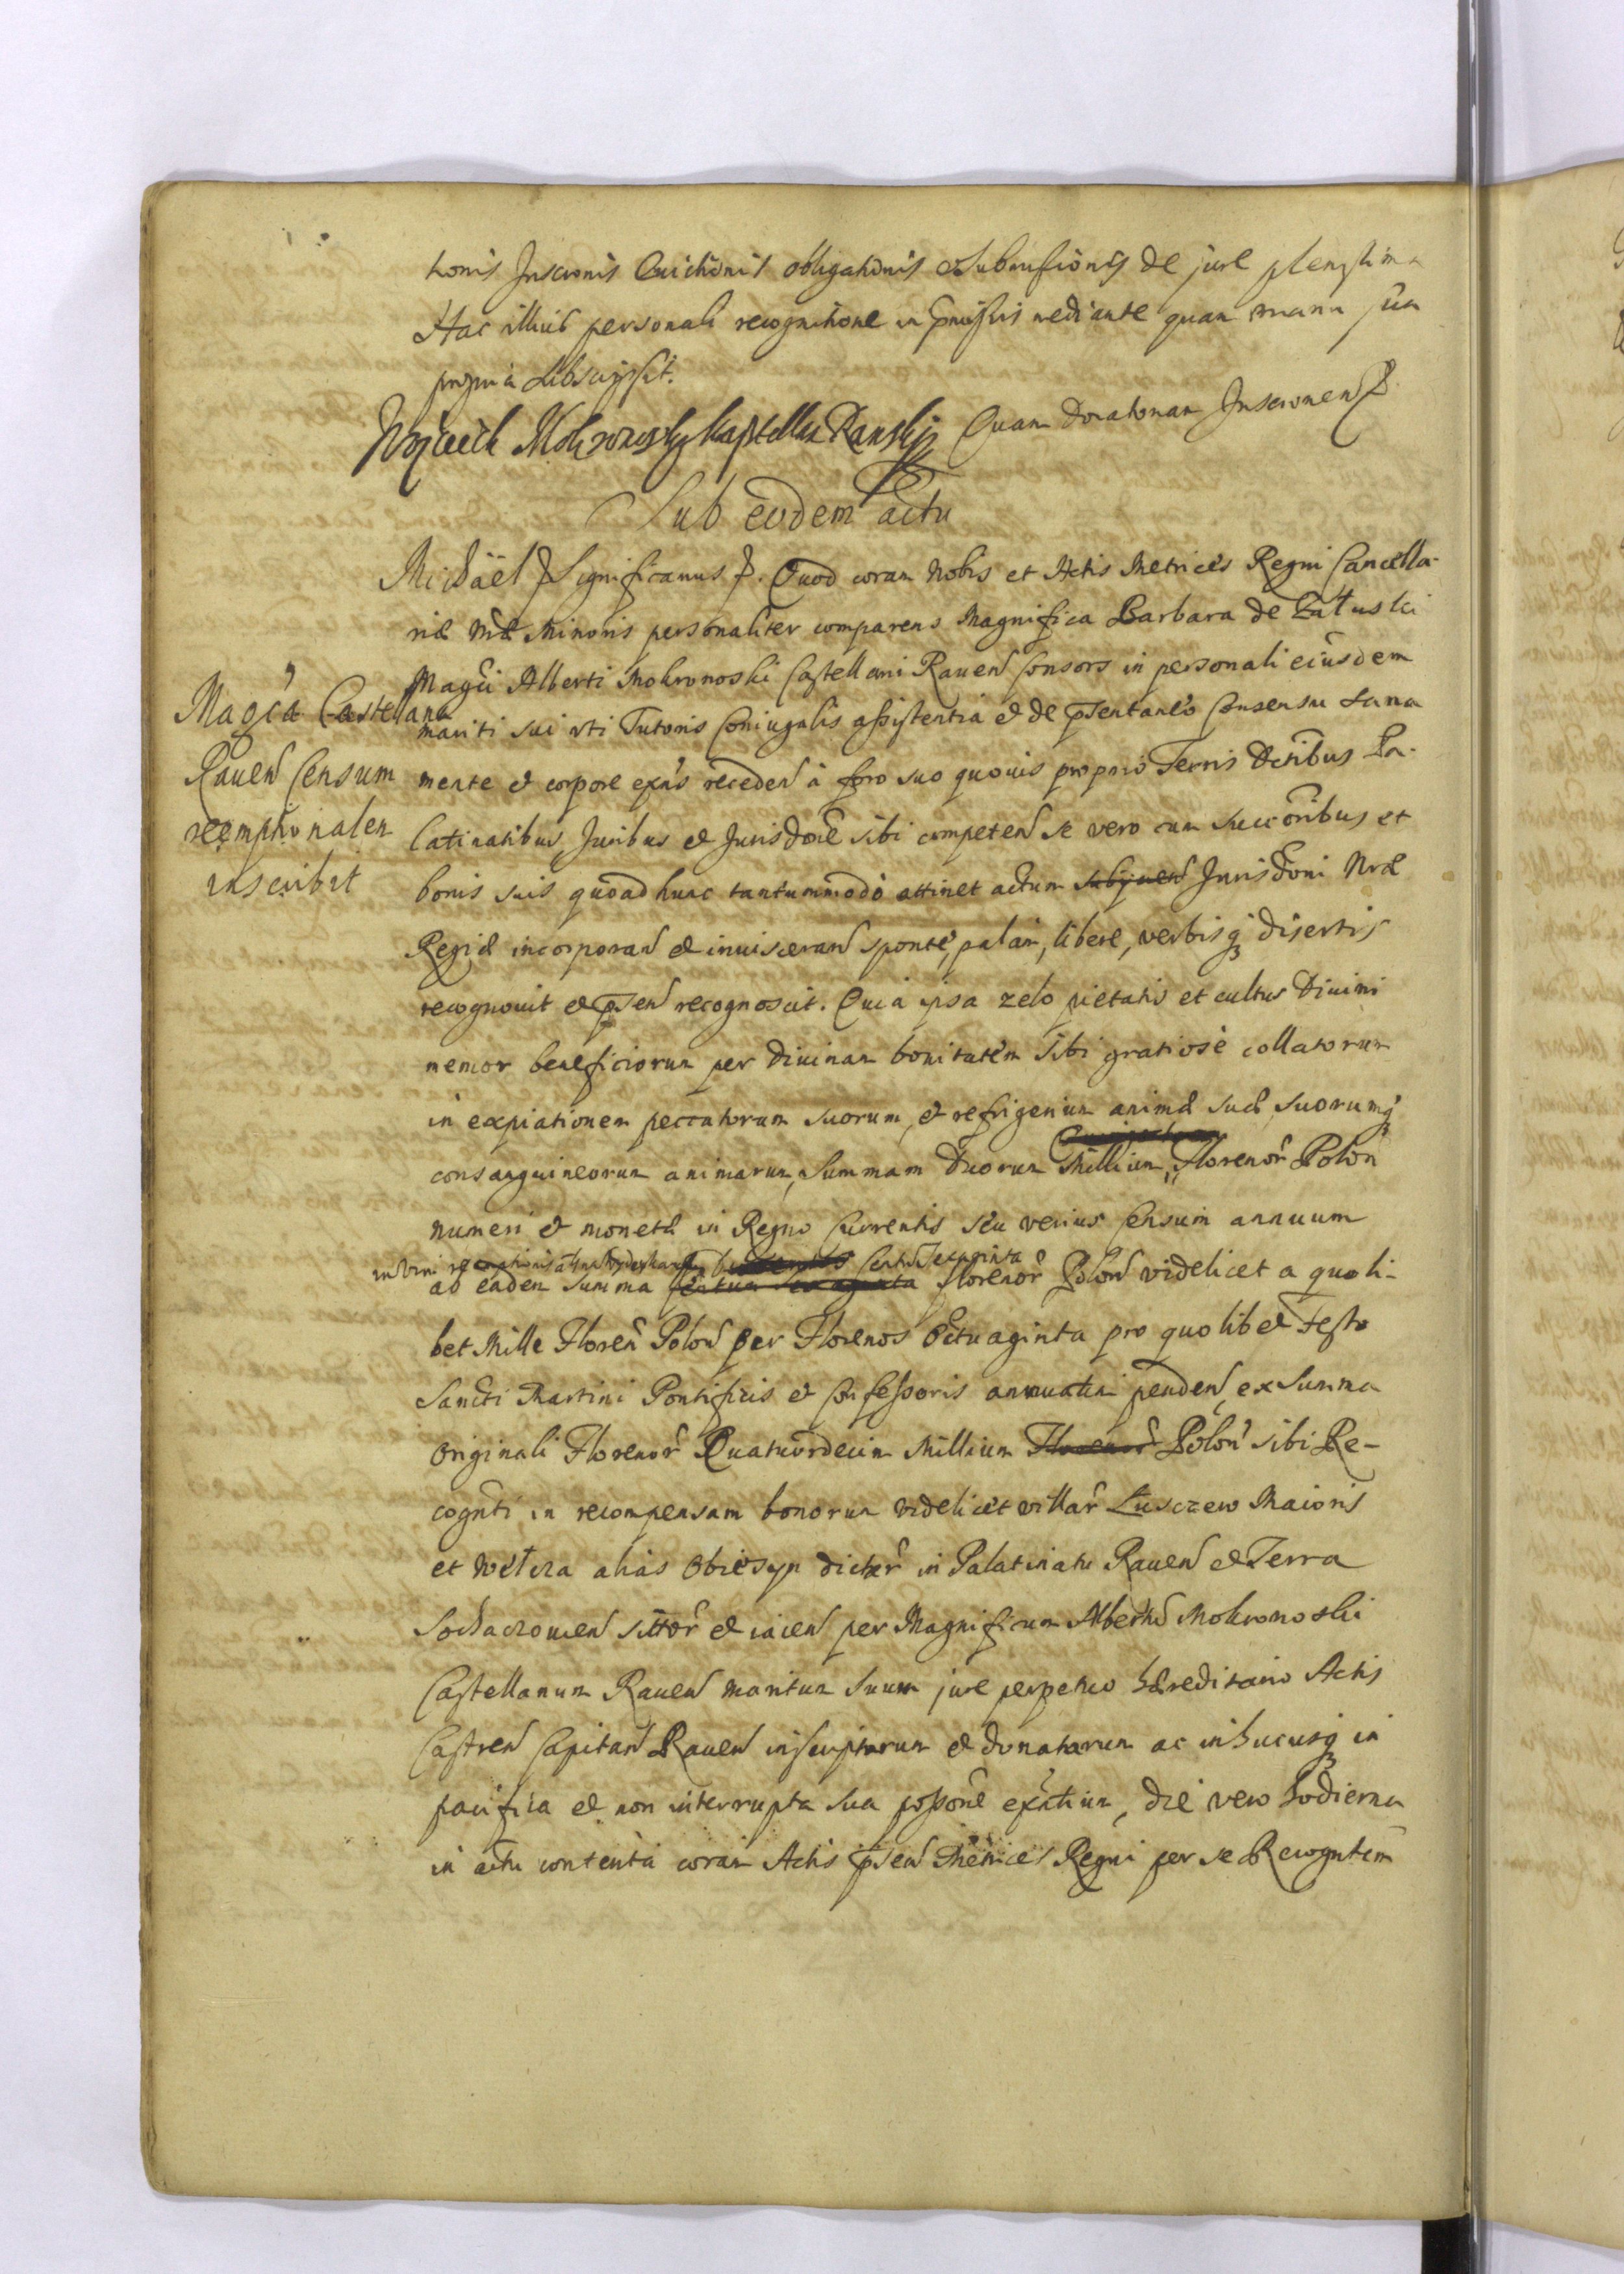 tionis Inscronis Euictionis obligationis et Submissionis de jure plenissima
Hac illius personali recognitione in pmissis mediante quam manu sua
propria subscripsit.
Wojciech Mokronoski Kasztellan Rawski Quam Donatonem Inscronem
Sub eodem actu
Michael Significamus. Quod coram Nobis et Actis Metrices Regni Cancella-
riæ Nræ Minoris personaliter comparens Magnifica Barbara de Załuski
Magci Alberti Mokronoski Castellani Rauen Consors in personali eiusdem
Magca Castellana
Rauen Censum
reemptionalem
inscribit
mariti sui vti Tutoris Coniugalis assistentia et de psentaneo Consensu sana
mente et corpore exns receden à foro suo quouis proprio Terris Dctibus Pa-
latinatibus, Juribus et Jurisdone sibi competen se vero cum succoribus et
bonis suis quoad hunc tantummodo attinet actum subijcien Jurisdoni Nræ
Regiæ incorporan et inuisceran sponte, palam, libere, verbisq disertis
recognouit et psen recognoscit. Quia ipsa zelo pietatis et cultus Diuini
memor beneficiorum per Diuinam bonitatem sibi gratiose collatorum
in expiationem peccatorum suorum, et refrigerium animæ suæ, suorumq
consanguineorum animarum, Summam Duorum Millium, Florenor Polon
numeri et monetæ in Regno Currentis seu verius Censum annuum
in vim reemptionis Centu Sexaginta
ab eadem summa Centum Sexaginta florenor Polon videlicet a quoli-
bet Mille Floren Polon per Florenos Octuaginta pro quolibet Festo
Sancti Martini Pontificis et Confessoris annuatim penden, ex Summa
Originali Florenor Quatuordecim Millium Florenor Polon sibi Re-
cognti in recompensam bonorum videlicet villar Łusczew Maioris
et Wełcza alias Obiesyn dictar in Palatinatu Rauen et Terra
Sochaczouien sitor et iacen per Magnificum Albertu Mokronoski
Castellanum Rauen maritum Suum jure perpetuo hæreditario Actis
Castren Capitan Rauen inscriptorum et donatorum ac in hucusq in
pacifica et non interrupta sua possone exntium, die vero hodierna
in actu contenta coram Actis psen Metrices Regni per se Recogntem